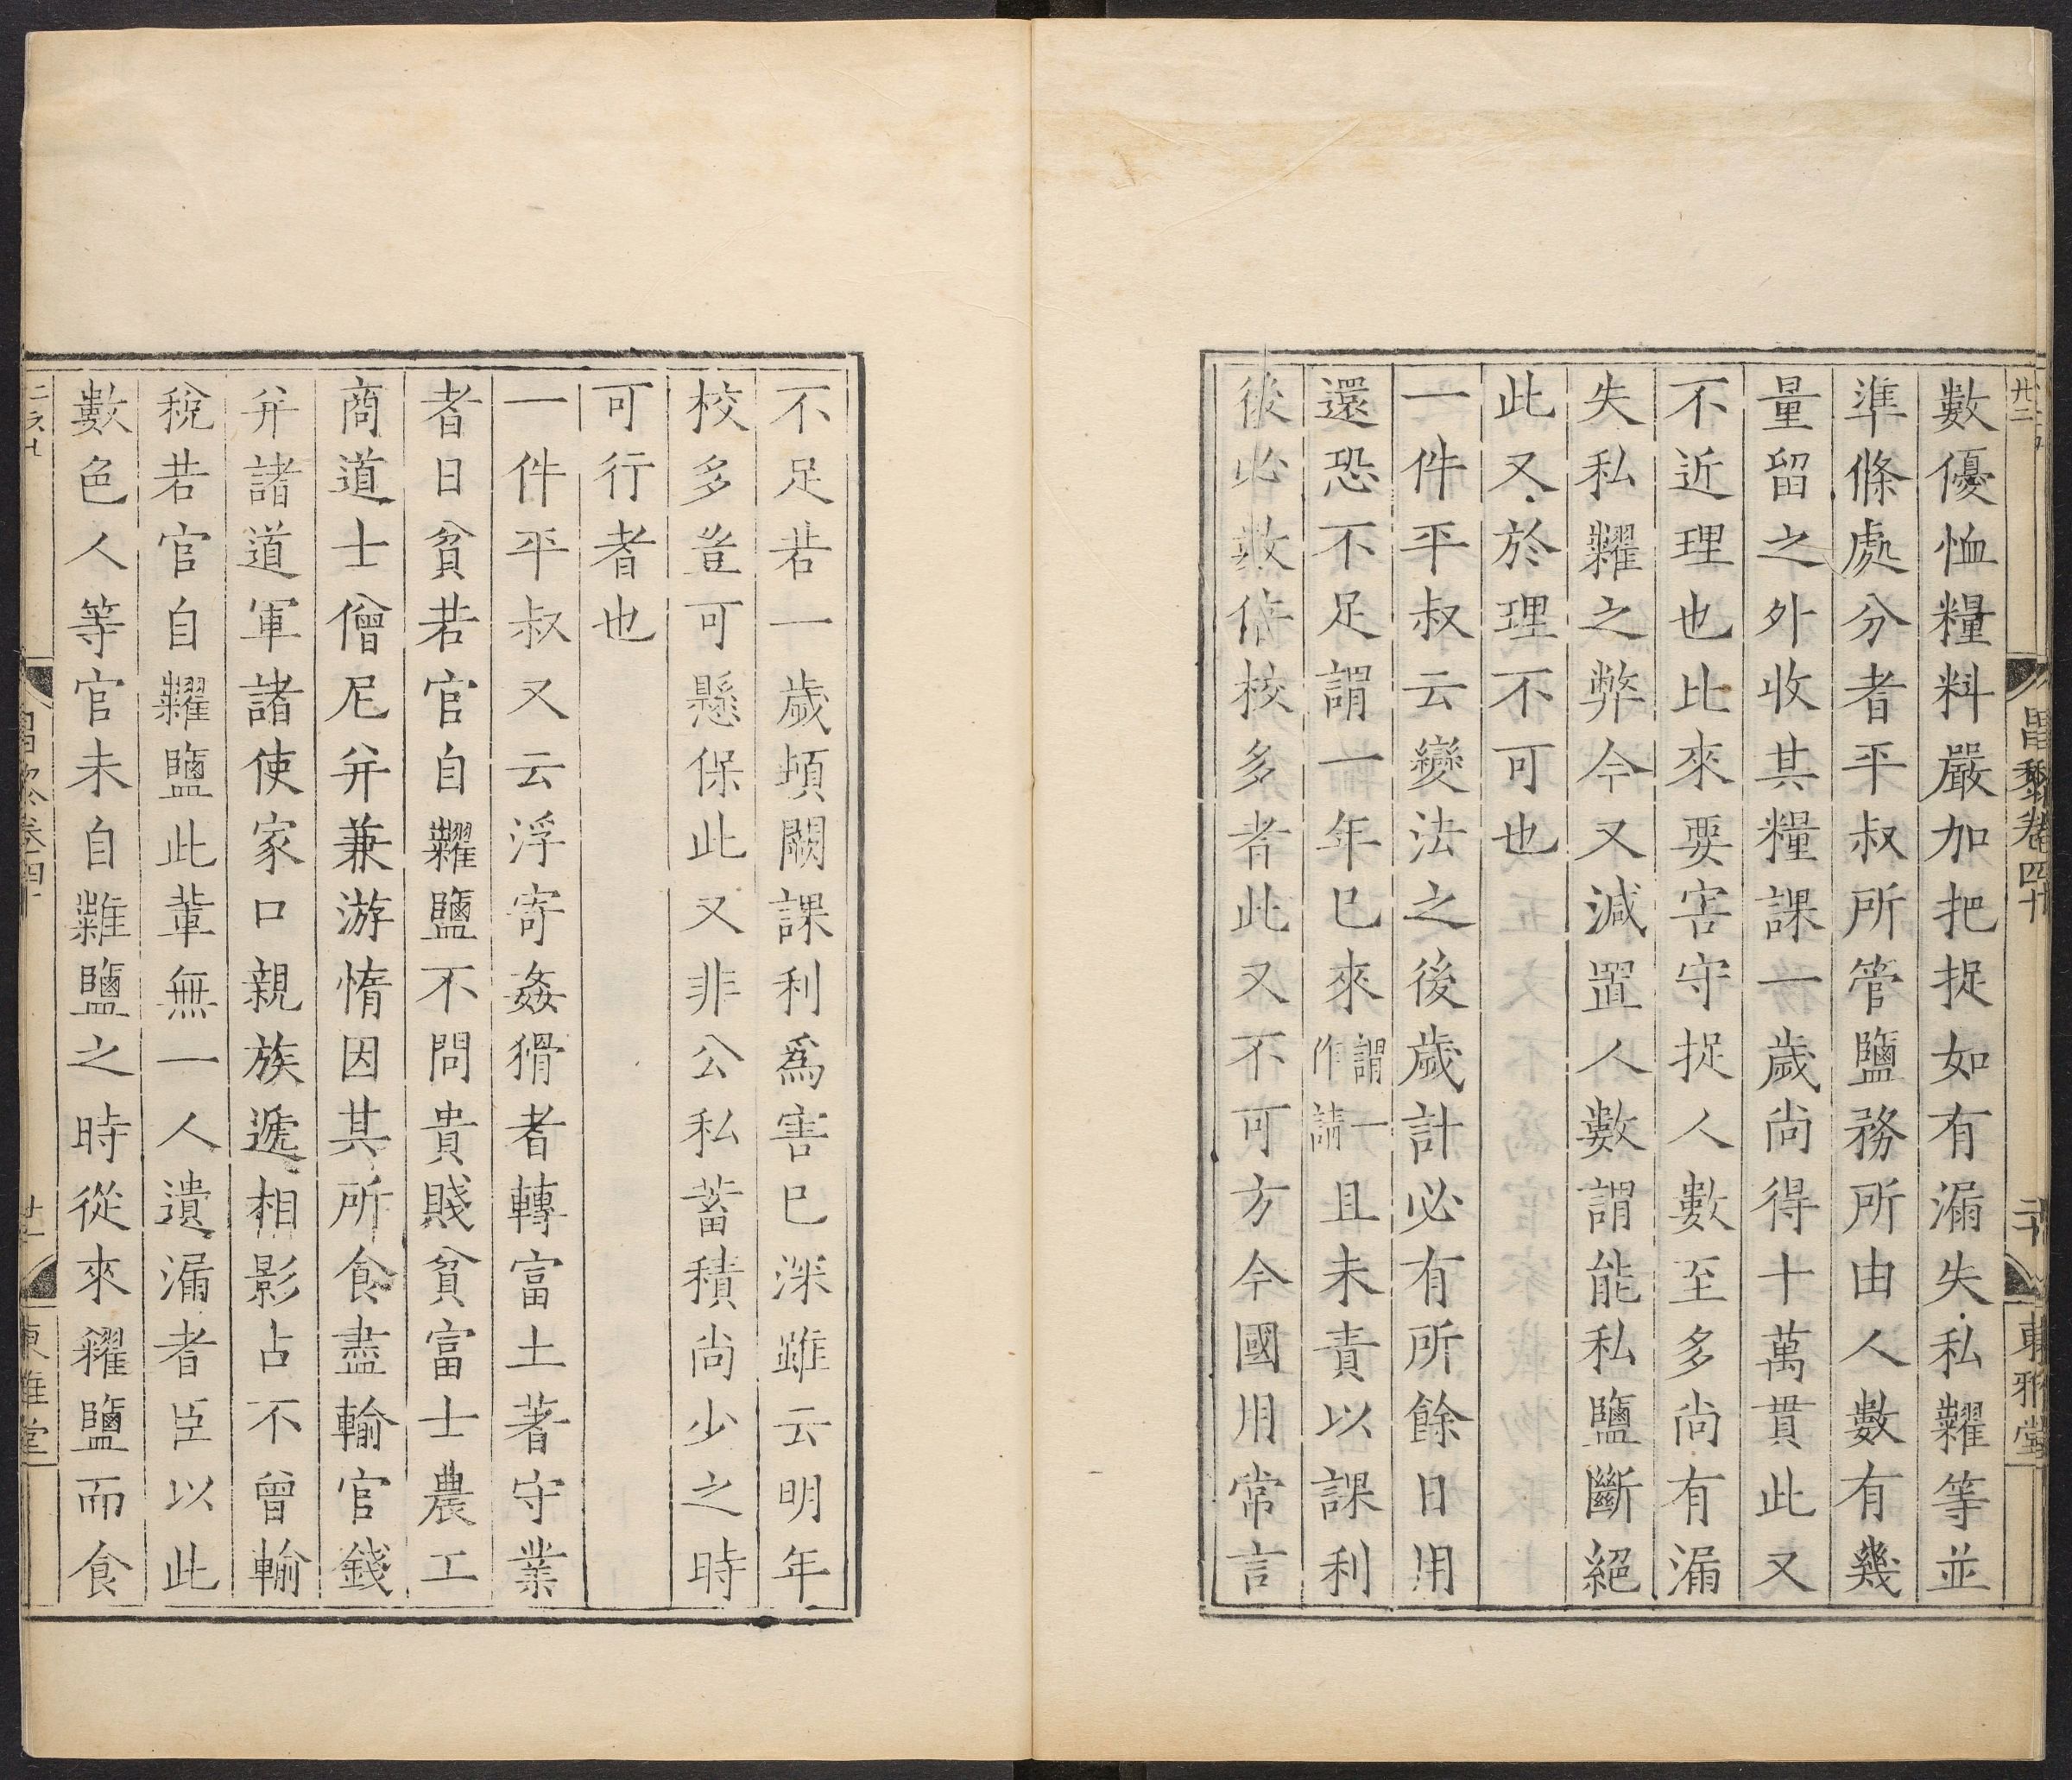 數優恤糧料嚴加把捉如有漏失私糶等並
準條處分者平叔所管鹽務所由人數有幾
量留之外收其糧課一歲尚得十萬貫此又
不近理也比來要害守捉人數至多尚有漏
失私糶之弊今又減置人數謂能私鹽斷絕
此又於理不可也
一件平叔云變法之後歲計必有所餘日用
還恐不足謂一年已來謂一作請且未責以課利
後必數倍校多者此又不可方今國用常言
不足若一歲頓闕課利爲害已深雖云明年
校多豈可懸保此又非公私蓄積尚少之時
可行者也
一件平叔又云浮寄姦猾者轉富土著守業
者日貧若官自糶鹽不問貴賤貧富士農工
商道士僧尼并兼游惰因其所食盡輸官錢
并諸道軍諸使家口親族遞相影占不曾輸
稅若官自糶鹽此輩無一人遺漏者臣以此
數色人等官未自糶鹽之時從來糴鹽而食
昌黎卷四十
二十
東雅堂
昌黎卷四十
廿一
東雅堂